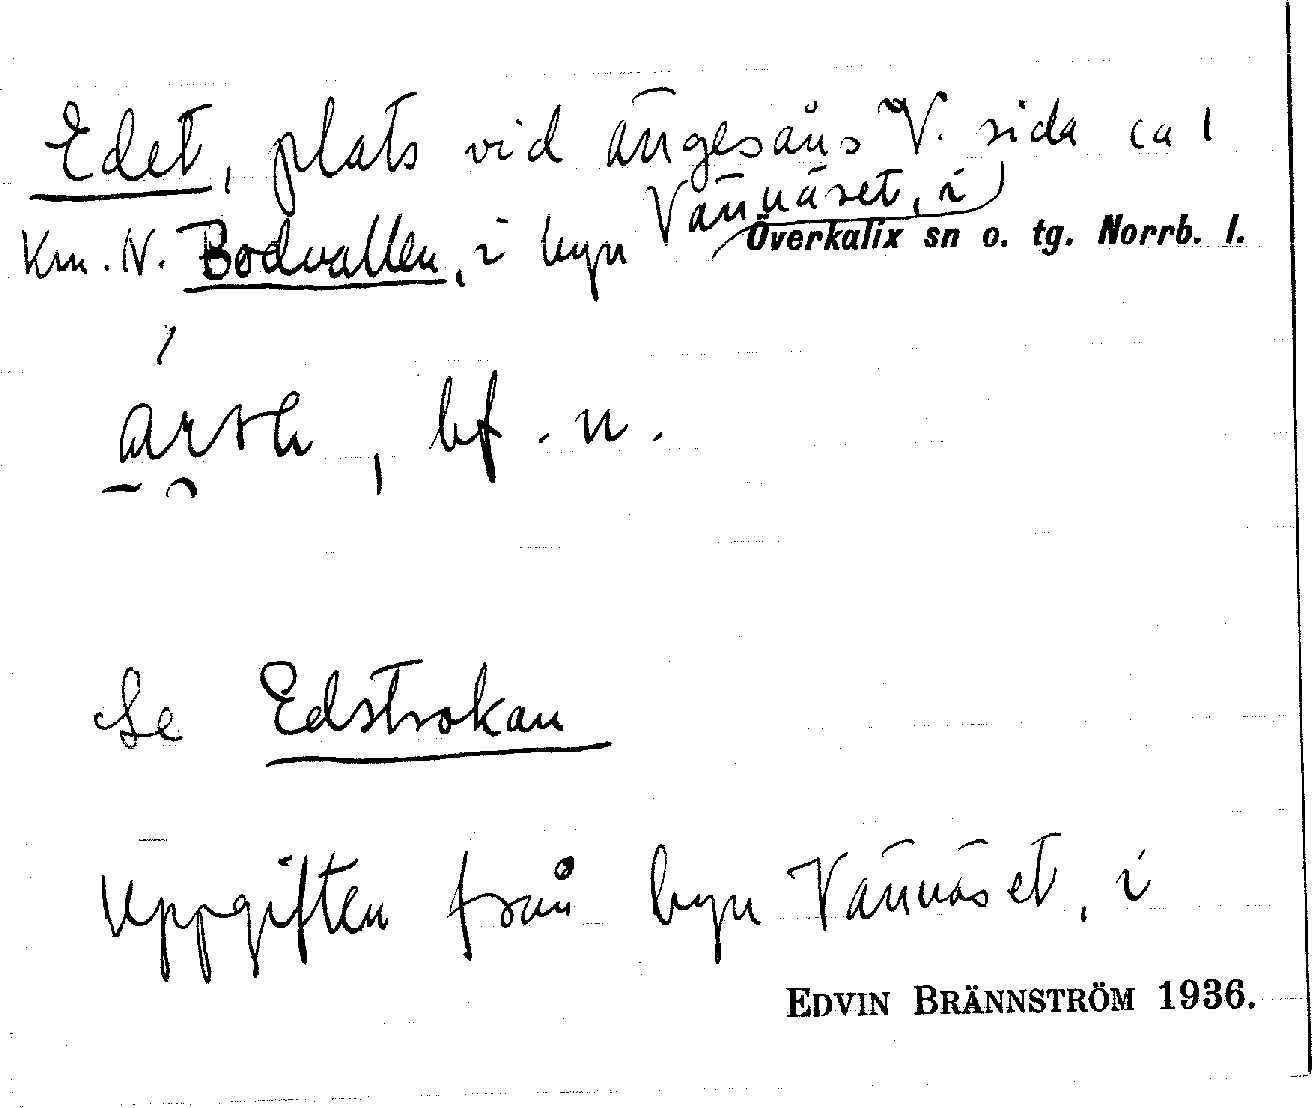 Edet, plats vid ängesåns V. sida ca 1
km. N. Bodvallen, i byn Vännäset, i
Överkalix sn o. tg. Norrb. l.
, bf. n.
Se Edstrokan
Uppgiften från byn Vännäset, i
EDVIN BRÄNNSTRÖM 1936.